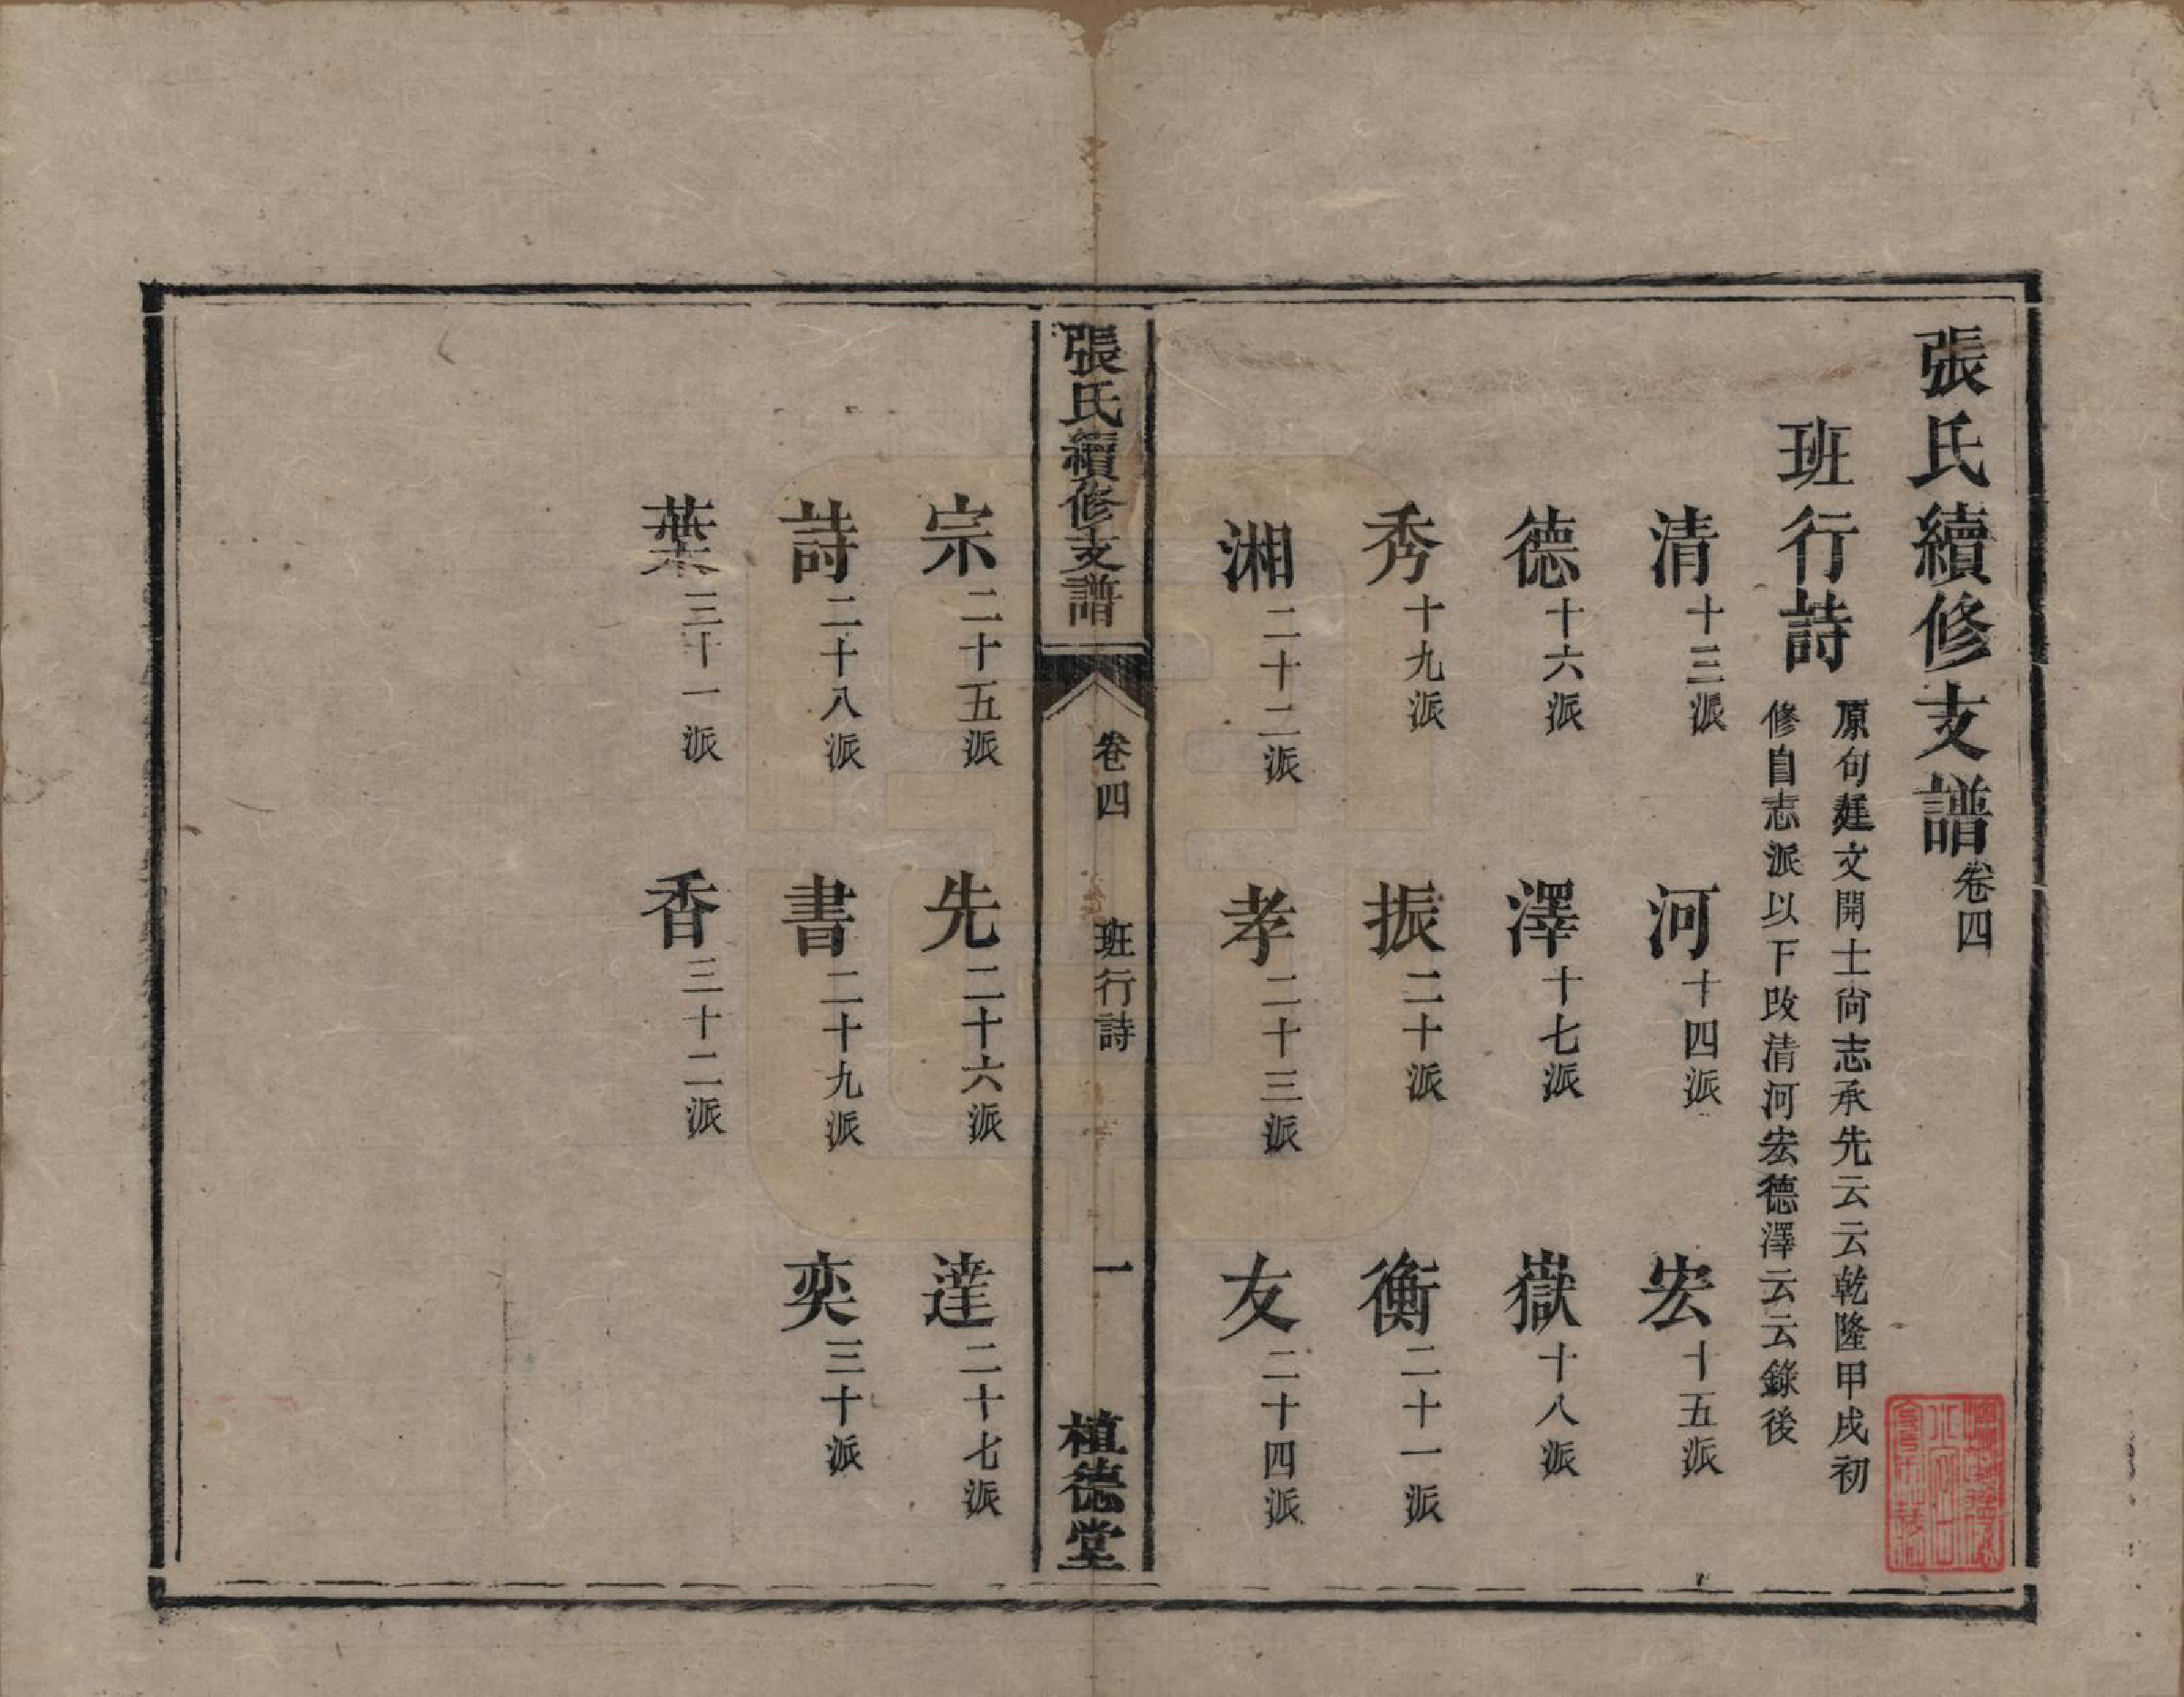 張氏續修支譜卷四
班行詩
原句廷文開士尙志承先云云乾隆甲戌初
修自志派以下改清河宏德澤云云錄後
清十三派 河十四派 宏十五派
德十六派 澤十七派 嶽十八派
秀十九派 振二十派 衡二十一派
湘二十二派 孝二十三派 友二十四派
張氏續修支譜 卷四 班行詩 一 植德堂
宗二十五派 先二十六派 達二十七派
詩二十八派 書二十九派 奕三十派
葉三十一派 香三十二派